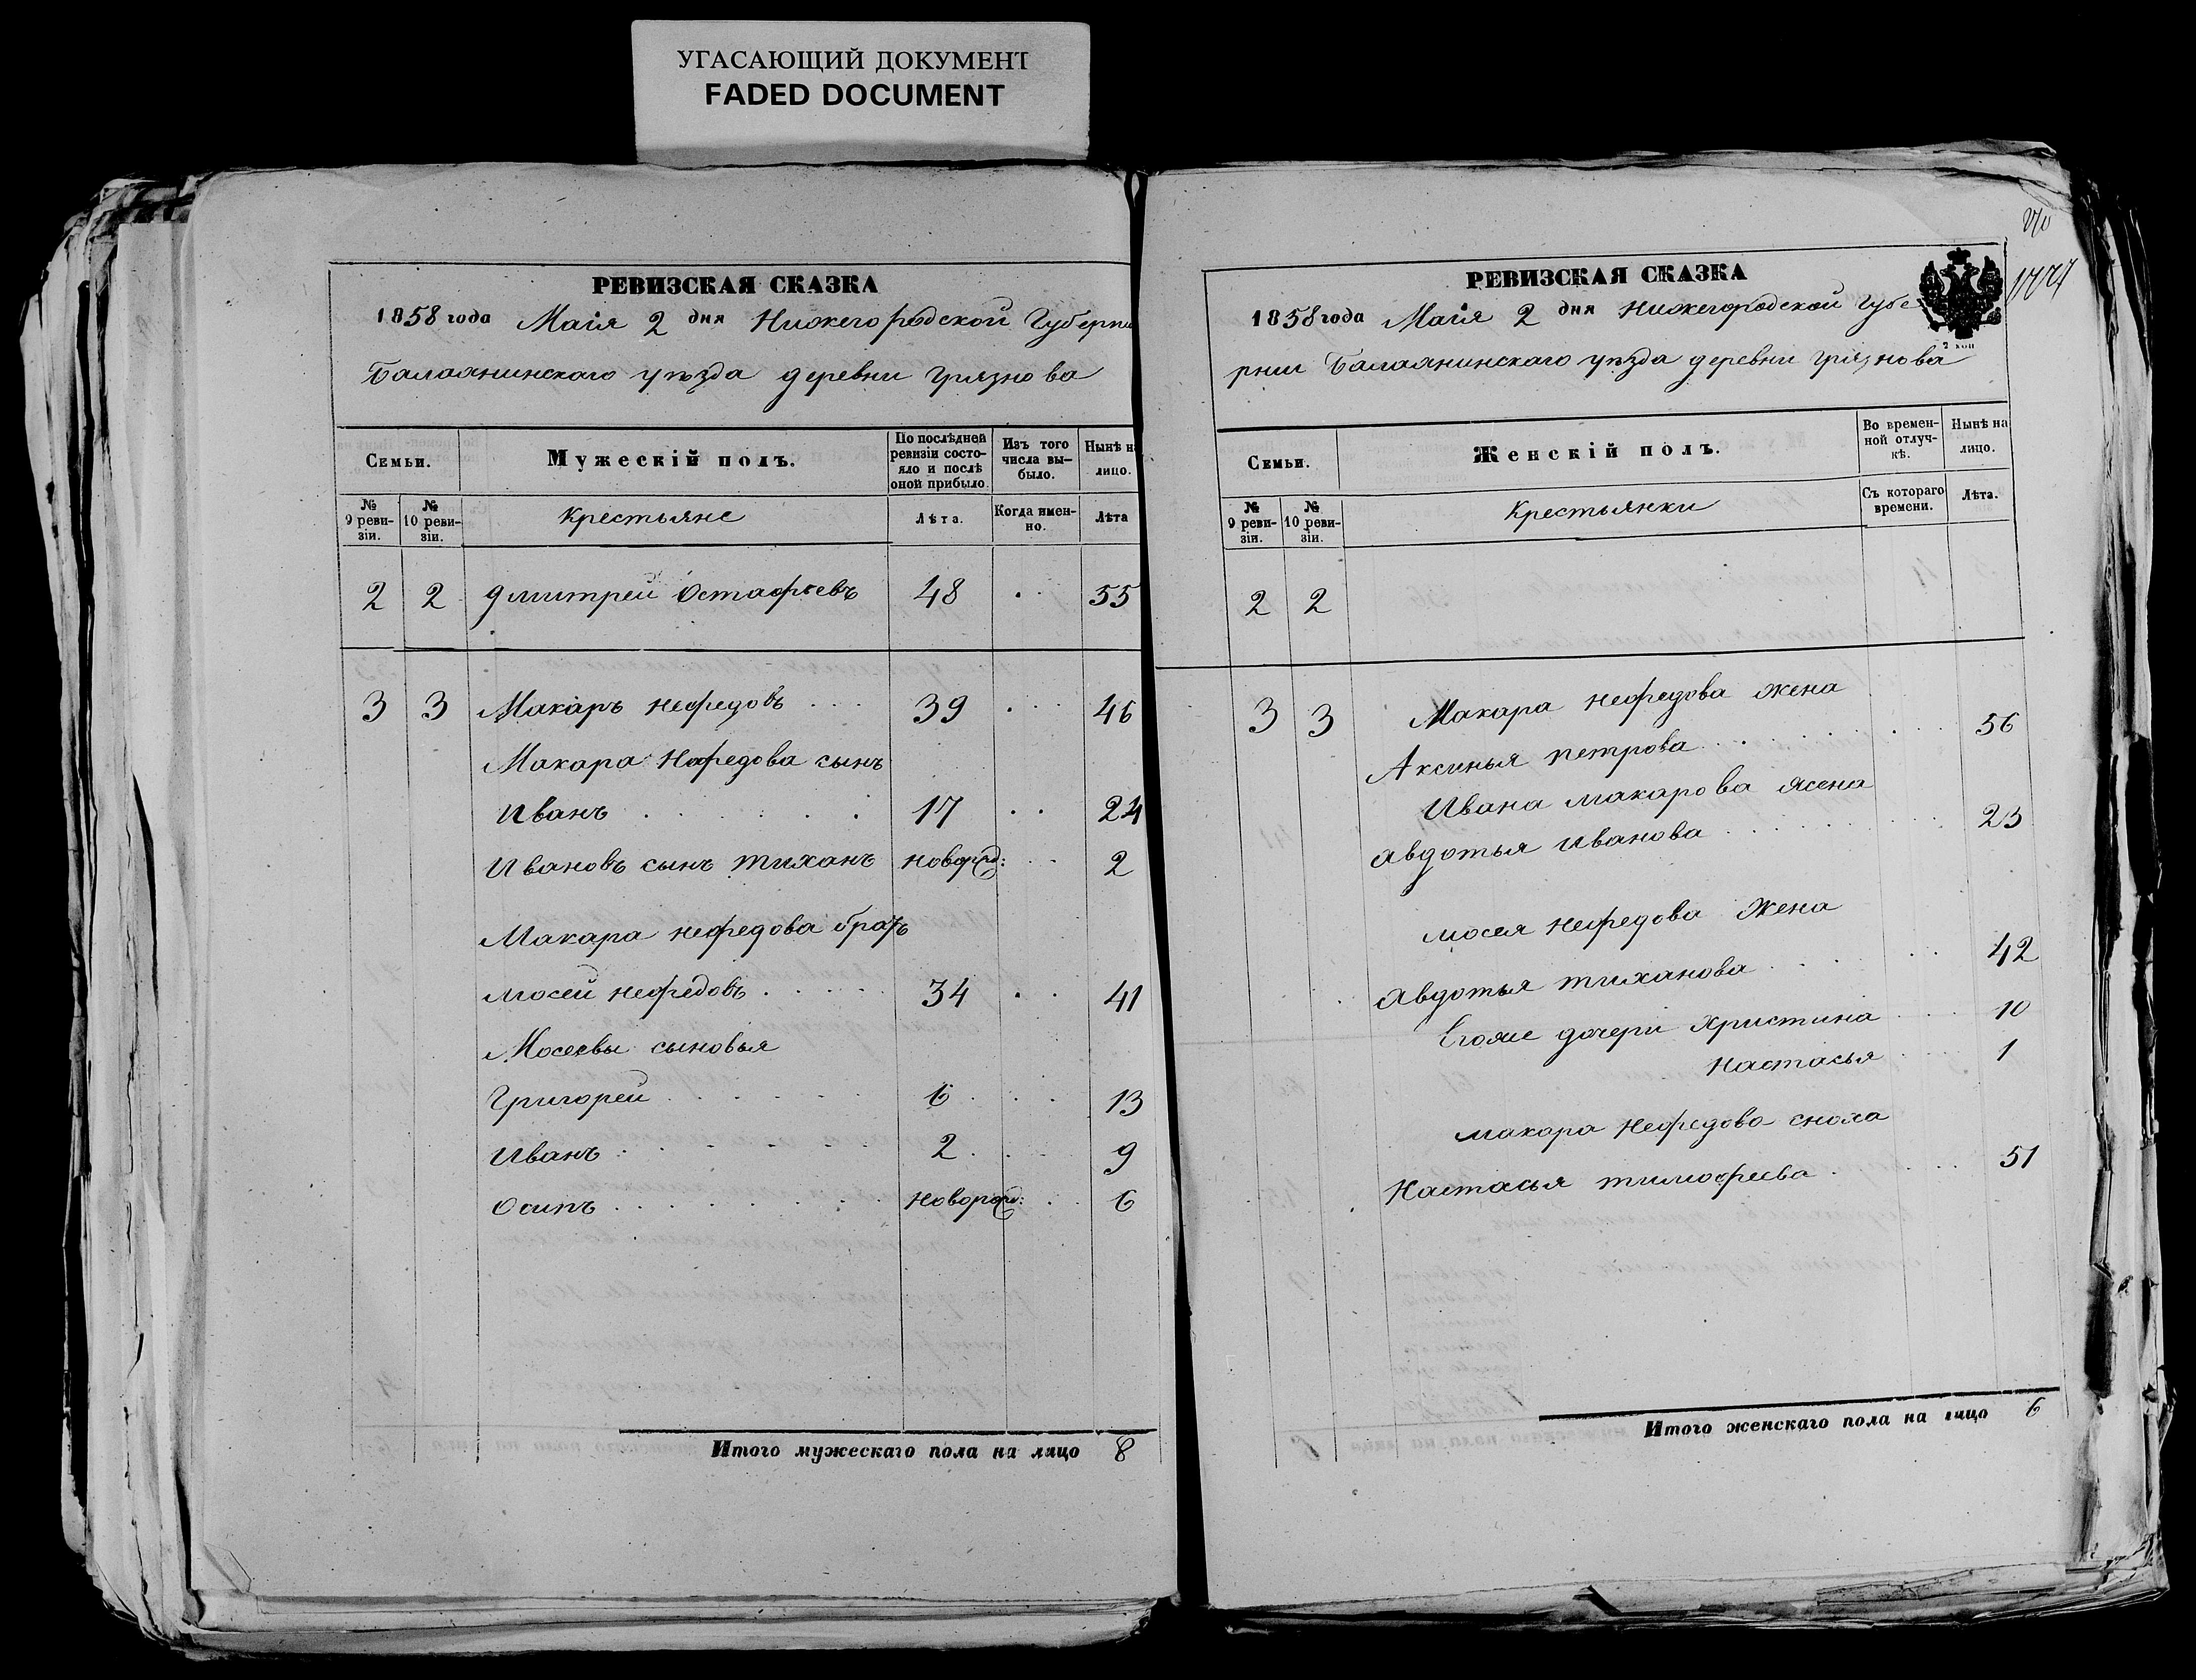 УГАСАЮЩИЙ ДОКУМЕНТ
FADED DOCUMENT
РЕВИЗСКАЯ СКАЗКА
1858 года Маія 2 дня Нижегородской Губерни
Балахнинскаго уѣзда деревни Грязнова
Семьи.
Мужескій полъ.
По послѣдней ревизіи состояло и послѣ оной прибыло.
Изъ того числа выбыло.
Нынѣ на лицо.
№ 9 ревизіи.
№ 10 ревизіи.
Крестьяне
Лѣта.
Когда именно.
Лѣта
2 2 Дмитрей Остафьевъ 48 55
3 3 Макаръ Нефедовъ 39 46
Макара Нефедова сынъ
Иванъ 17 24
Ивановъ сынъ Тиханъ новорож: 2
Макара Нефедова братъ
Мосей Нефедовъ 34 41
Мосеевы сыновья
Григорей 6 13
Иванъ 2 9
Осипъ новорож: 6
Итого мужескаго пола на лицо 8
РЕВИЗСКАЯ СКАЗКА
1858 года Маія 2 дня Нижегородской Губе
рнии Балахнинскаго уѣзда деревни Грязнова
2 коп
Семьи.
Женскій полъ.
Во временной отлучкѣ.
Нынѣ на лицо.
№ 9 ревизіи.
№ 10 ревизіи.
Крестьянки
Съ котораго времени.
Лѣта.
2 2
3 3 Макара Нефедова жена
Аксинья Петрова 56
Ивана Макарова жена
Авдотья Иванова 23
Мосея Нефедова жена
Авдотья Тиханова 42
Егоже дочери Христина 10
Настасья 1
Макара Нефедова сноха
Настасья Тимофеева 51
Итого женскаго пола на лицо 6